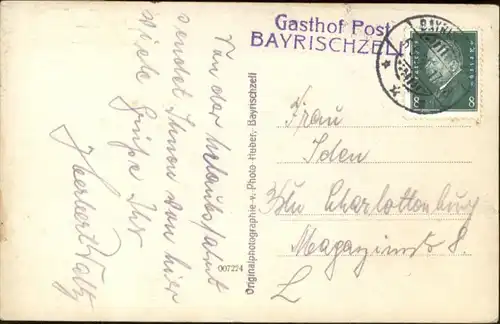 Von der Urlaubsfahrt
sendet Ihnen von hier
viele Grüße Ihr
Herbert Waltz
007274
Originalphotographie v. Photo-Huber, Bayrischzell
Gasthof Post
BAYRISCHZELL
8 8
Frau
Iden
Bln Charlottenburg
Magazinstr 8.